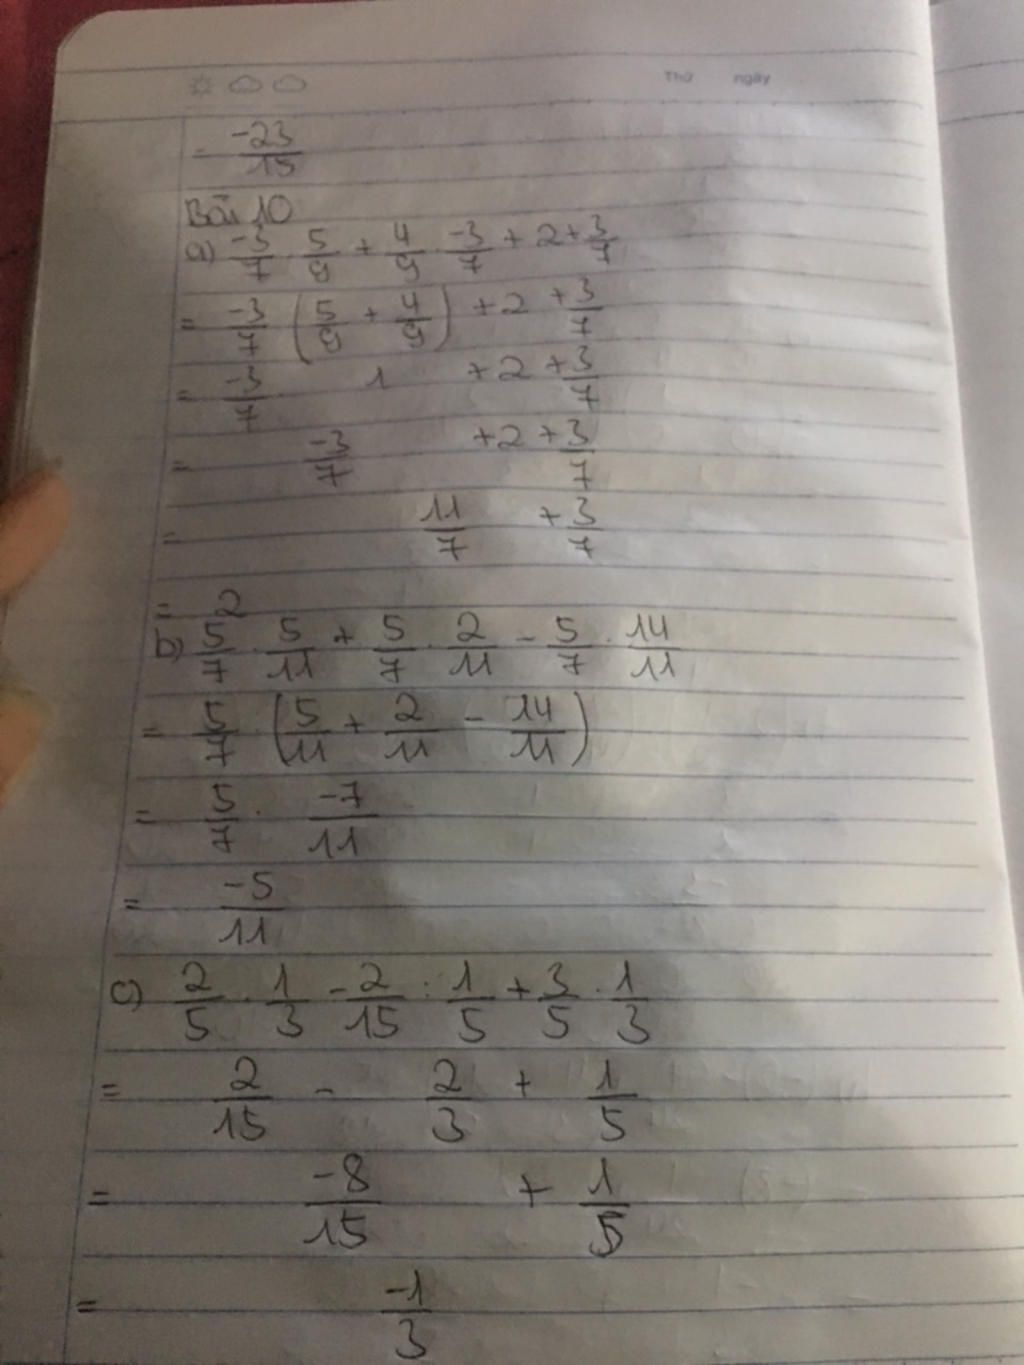 Thứ ngày
= -23/15
Bài 10
a) -3/7 . 5/9 + 4/9 . -3/7 + 2 + 3/7
= -3/7 (5/9 + 4/9) + 2 + 3/7
= -3/7 . 1 + 2 + 3/7
= -3/7 + 2 + 3/7
= 11/7 + 3/7
= 2
b) 5/7 . 5/11 + 5/7 . 2/11 - 5/7 . 14/11
= 5/7 . (5/11 + 2/11 - 14/11)
= 5/7 . -7/11
= -5/11
c) 2/5 . 1/3 - 2/15 : 1/5 + 3/5 . 1/3
= 2/15 - 2/3 + 1/5
= -8/15 + 1/5
= -1/3